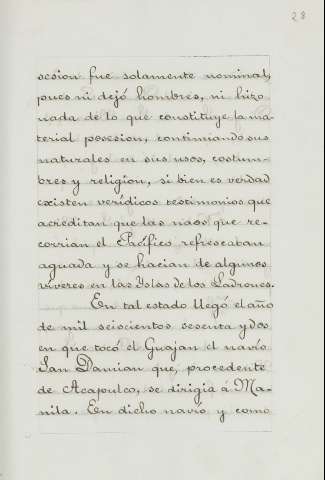 28
sesion fue solamente nominal,
pues ni dejó hombres, ni hizo
nada de lo que constituye la ma-
terial posesion, continuando sus
naturales en sus usos, costum-
bres y religion, si bien es verdad
existen verídicos testimonios que
acreditan que las naos que re-
corrian el Pacífico refrescaban
aguada y se hacian de algunos
víveres en las Islas de los Ladrones.
En tal estado llegó el año
de mil seiscientos sesenta y dos
en que tocó el Guajan el navio
San Damian que, procedente
de Acapulco, se dirigia á Ma-
nila. En dicho navío y como